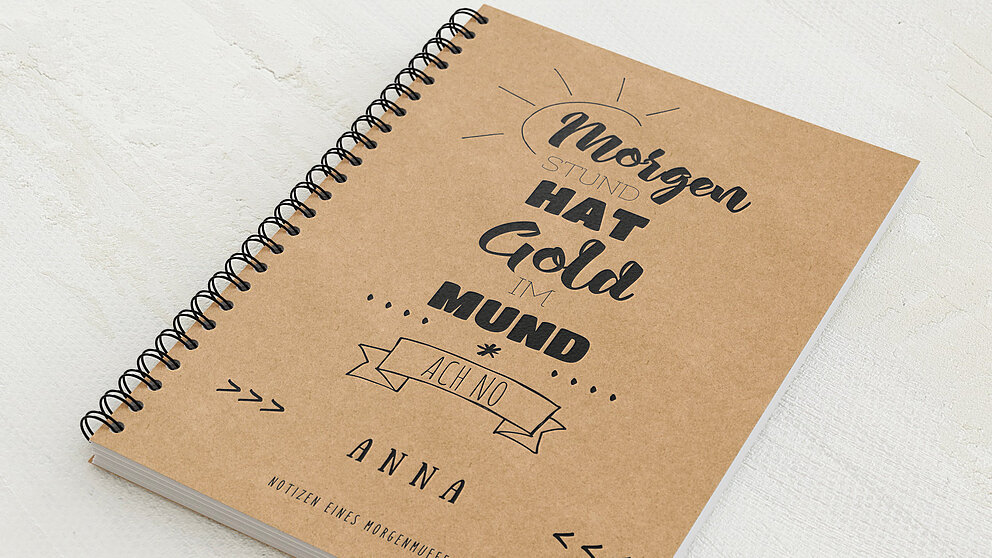 Morgen
STUND
HAT
Gold
IM
MUND
*
ACH NO
>>>
ANNA
<<<
NOTIZEN EINES MORGENMUFFE